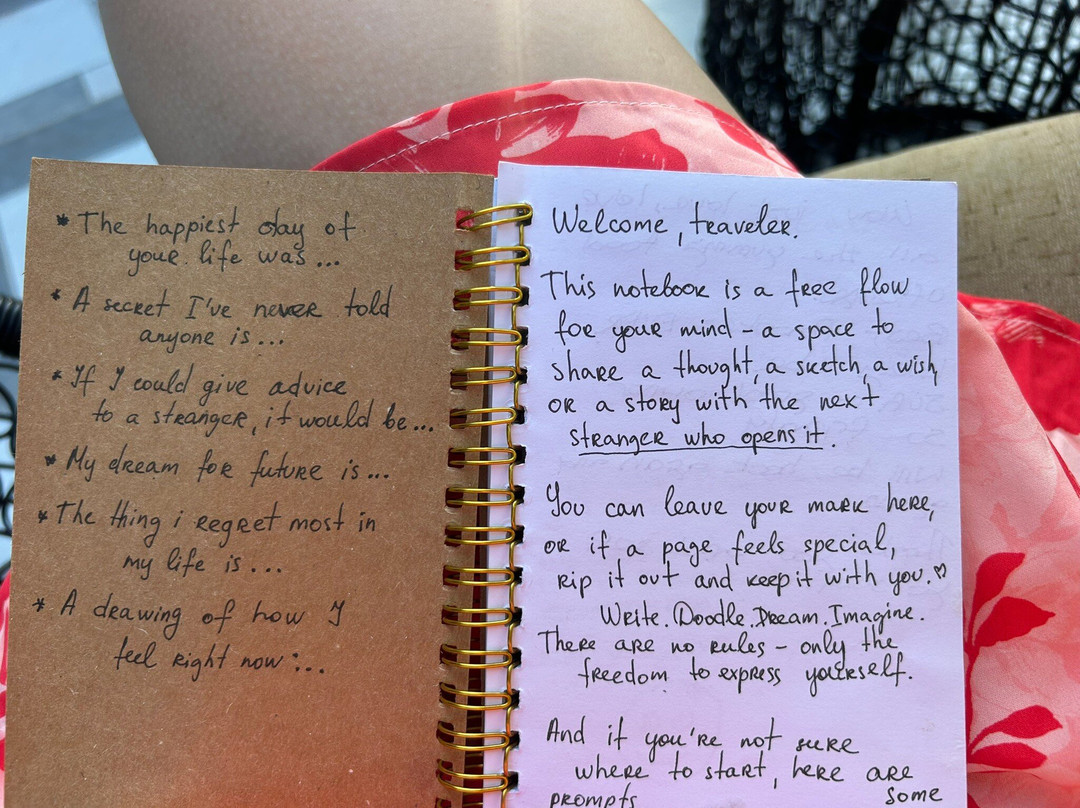 * The happiest day of
your life was...
* A secret I've never told
anyone is...
* If I could give advice
to a stranger, it would be...
* My dream for future is...
* The thing i regret most in
my life is...
* A drawing of how I
feel right now:...
Welcome, traveler.
This notebook is a free flow
for your mind - a space to
share a thought, a sketch, a wish,
or a story with the next
stranger who opens it.
You can leave your mark here,
or if a page feels special,
rip it out and keep it with you.♡
Write. Doodle. Dream. Imagine.
There are no rules - only the
freedom to express yourself.
And if you're not sure
where to start, here are
some
prompts